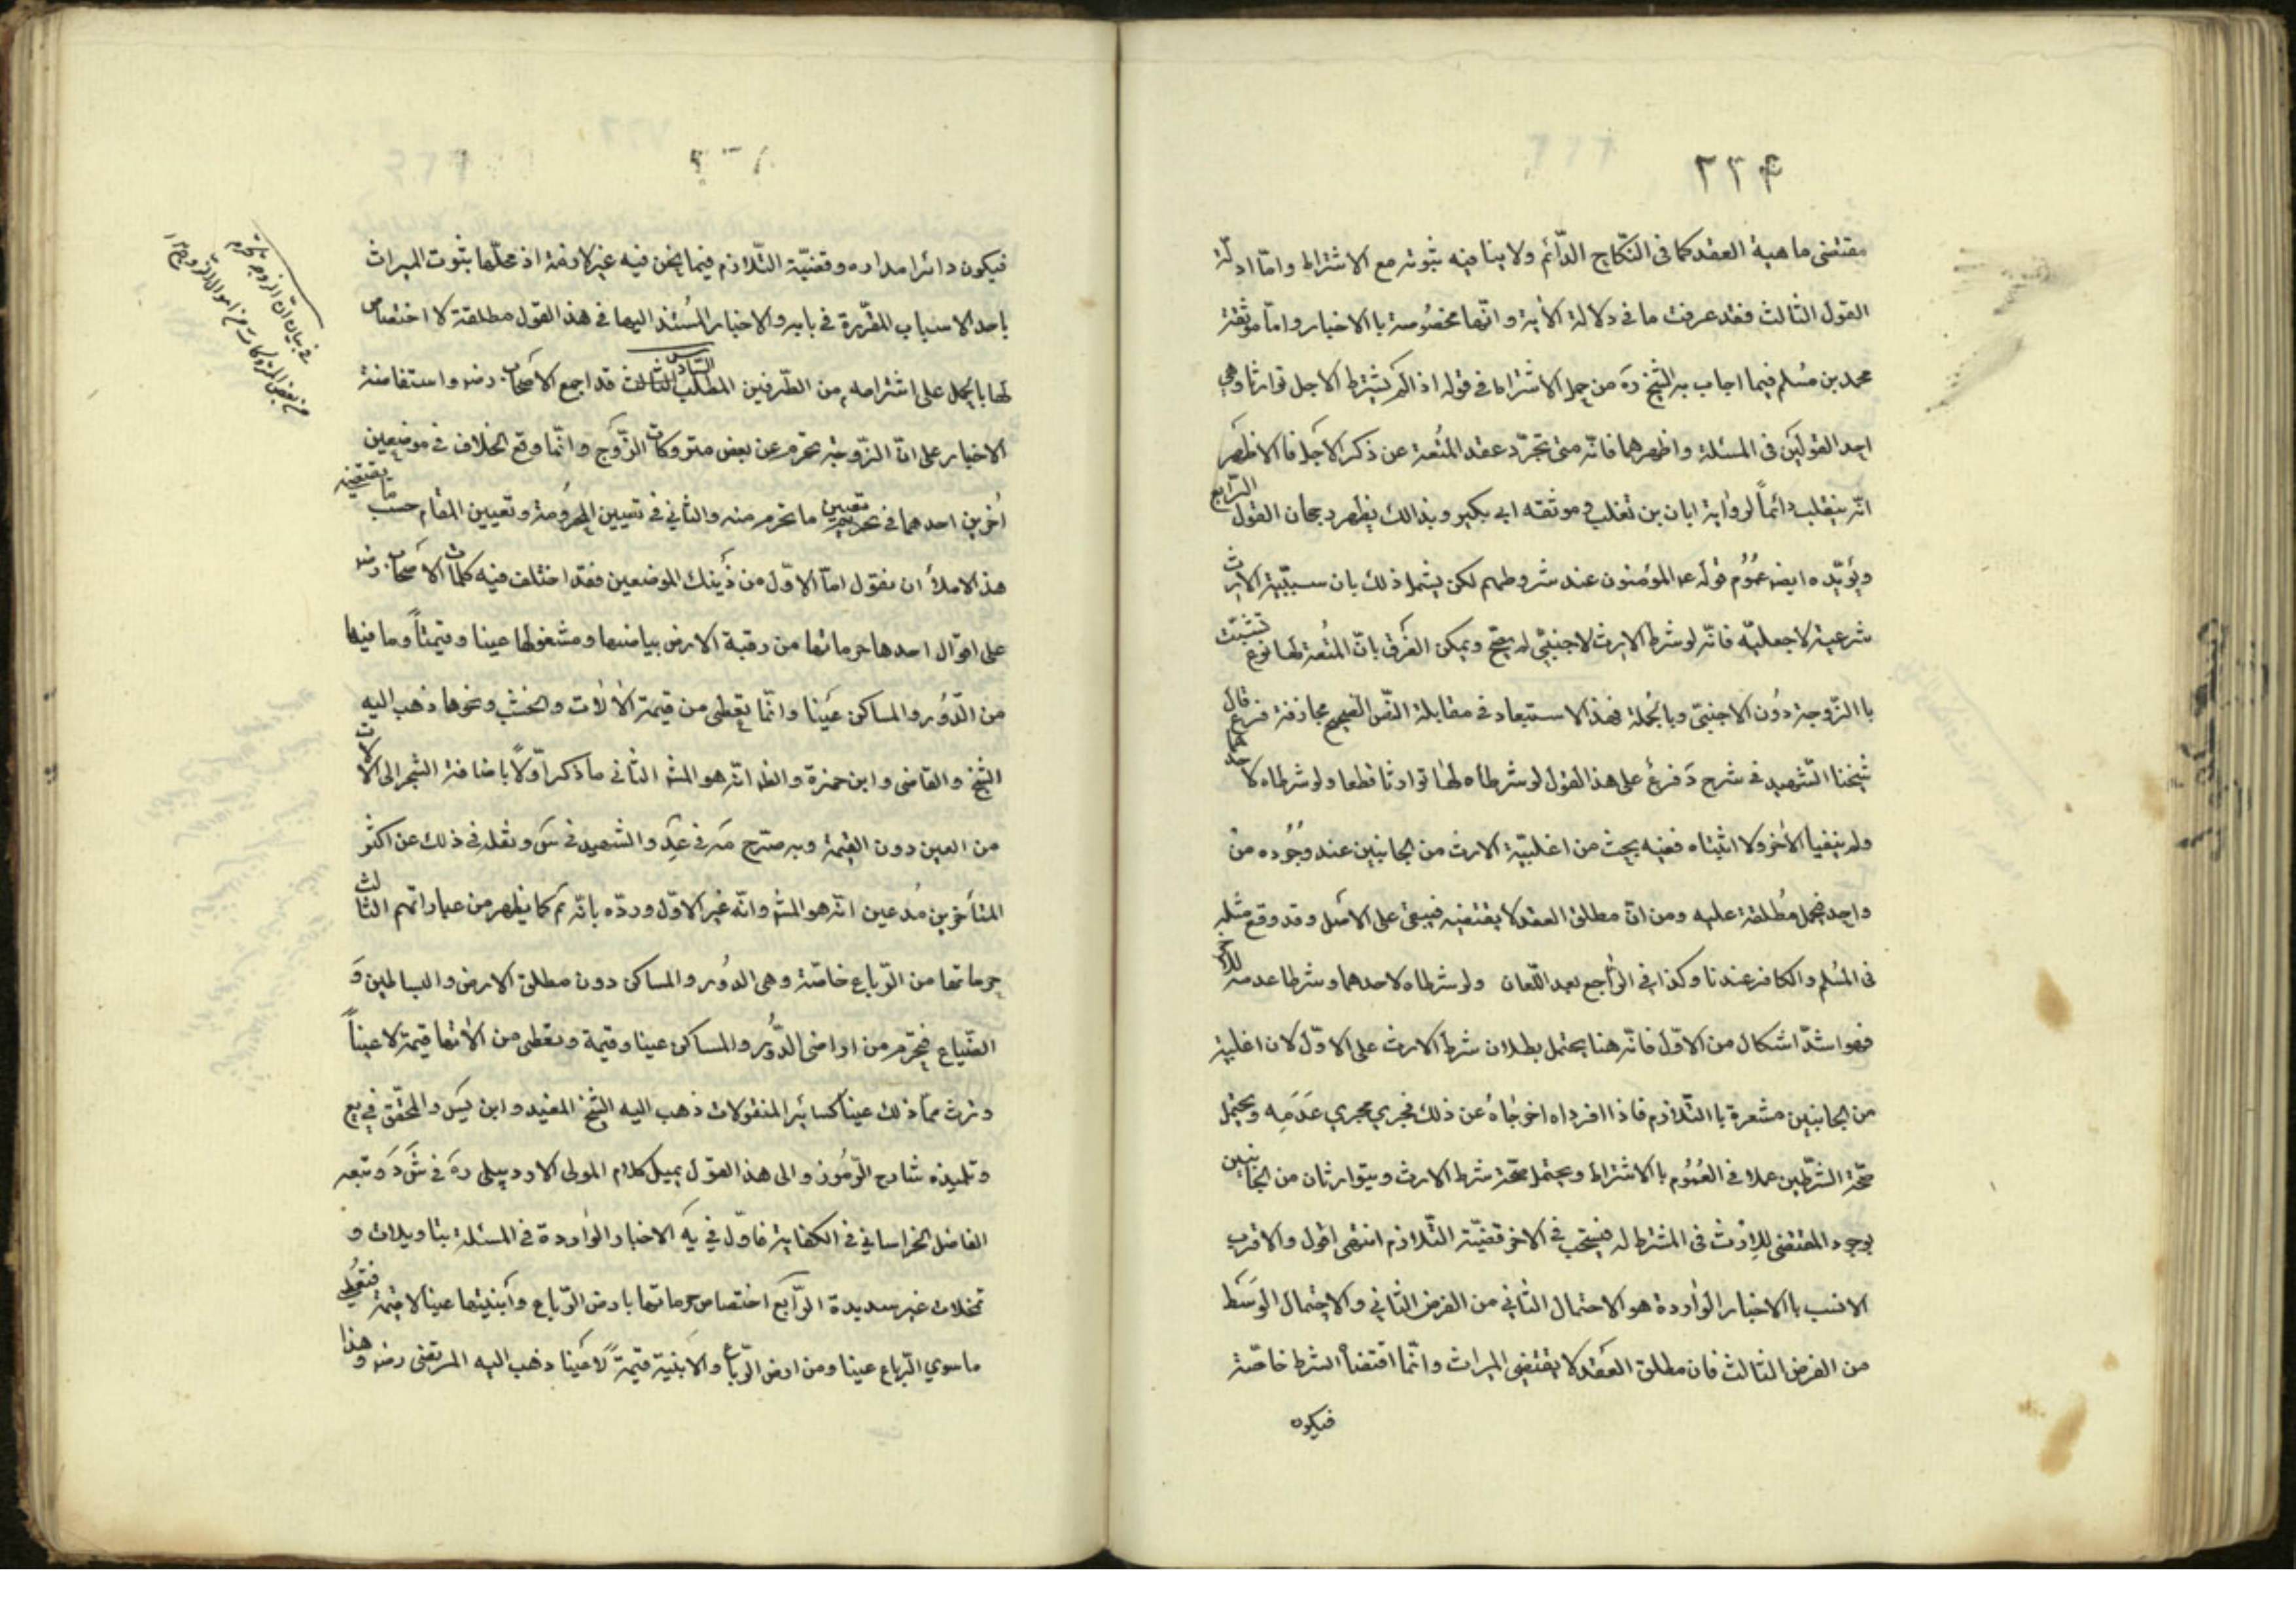 ٢٢٤
مقتضى ماهية العقد كما فى النّكاح الدّائم ولا ينافيه ثبوته مع الاشتراط وامّا ادلّة
القول الثالث فقد عرفت ما فى دلالة الآية وانّها مخصُوصة باالاخبار وامّا موثقة
محمد بن مُسلم فيما اجاب به الشّيخ ره من حمل الاشتراط فى قوله اذا لم يشترط الاجل توارثا وهى
احد القولَين فى المسئلة واظهرهما فانّه متى تجرّد عقد المتُعة عن ذكر الاجَل فاالاظهَر
انّه ينقلب دائماً لرواية ابان بن تغلب وموثقه ابن بكير وبذالك يظهر رجحان القول الرّابع
ويؤيّده ايضا عمُوُم قوله ع المؤمنون عند شروطهم لكن يشمل ذلك بان سببيّة الارث
شرعية لا جعليّه فانّه لو شرط الارث لاجنبىّ لم يصّح ويمكن الفرَق بانّ المتُعة لها نوع تشبّث
با الزّوجة دوُن الاجنبىّ وباُلجملة فهذا الاستبعاد فى مقابلة النّصّ الصحيح مجازفة فرع قال
شيخنا الشّهيد فى شرح دَ فرعُ على هذا القول لو شرطاه لهُا توارثا قطعا ولو شرطاه لاحدهما
ولم ينفيا الآخر ولا اثبتاه ففيه بحث من اغلبيّة الارث من الجانبين عند وجُوُده من
واحد فيحمل مُطلقه عليه ومن انّ مطلق العقد لا يقتضيه فيبقى على الاصَل وقد وقع مثله
فى المُسلم والكافر عندنا وكذا فى الراُجع بعد اللّعان ولو شرطاه لاحدهما وشرطا عدمه للآخر
فهو اشدّ اشكال من الاوّل فانّه هنا يحتمل بطلان شرط الارث على الاوّل لان اغلبية
من الجانبين مشعرة با التّلازم فاذا افرداه اخرجُاه عن ذلك فجرى مجرى عَدَمِه ويحتمل
صحّة الشّرطين عملا فى العُمُوم باالاشتراط ويحتمل صحّة شرط الارث ويتوارثان من الجانبين
لوجود المقتضى للإرث فى المشترط له فيستحب فى الاخر قضيّة التّلازم انتهى اقول والاقرب
الانسب باالاخبار الوُاردة هو الاحتمال الثاّنى من الفرض الثّانى والاحتمال الوسَط
من الفرض الثالث فان مطلق العَقد لا يقتضى الميراث وانّما اقتضاُ الشرط خاصّة
فيكون
فيكون دائرا مداره وقضيّة التّلازم فيما نحن فيه غير لازمة اذ محلّها ثبوت الميراث
باحد الاسباب المقّررة فى بابه والاخبار المُستند اليها فى هذا القول مطلقة لا اختصاص
لها بالحمل على اشتراطه من الطّرفين المطلب السّادس قد اجمع الاصحَاب رضه واستفاضة
الاخبار على انّ الزّوجة تحرم عن بعض متروكات الزّوج وانّما وقع الخلاف فى موضعين
اُخرين احدهما فى تعيين ما تحرم منه والثاني فى تعيين المحُرومة وتعيين المقام حسب ما يقتضيه
هذا الاملاء ان نقول امّا الاوّل من ذَينك الموضعين فقد اختلف فيه كلمات الاصحَاب رضه
على اقوال احدها حرمانها من رقبة الارض بياضها ومشغولها عينا وقيمتاً وما فيها
من الدّور والمساكن عيَنا وانّما يعُطى من قيمة الالآت والخشب ونحوها ذهب اليه
الشّيخ والقاضى وابن حمزة والظ انّه هو المش الثّانى ما ذكر اوّلاً باضافة الشجر الى الآلات
من العين دون القيمة وبه صّرح مَه فى عِدَ والشهيد فى سَ ونقله فى ذلك عن اكثُر
المتأخرين مُدعين انّه هو المش وانّه غير الاوّل وردّه بانّه تم كما يظهر من عباراتهم الثالث
حرمانها من الرّباع خاصّة وهى الدوُر والمساكن دون مطلق الارض والبساطين وَ
الضّياع فتحّرم من اراضى الدّوُر والمساكن عينا وقيمة وتعطى من الآتها قيمة لا عيناً
وترث ممّا ذلك عيناً كسائر المنقولات ذهب اليه الشّيخ المفيد وابن ادريس والمحقّق فى يع
وتلميذه شارح الرّموُز والى هذا القوَل يميل كلام المولى الاردبيلى رهَ فى شَرَدَ وتبعه
الفاضل الخراسانى فى الكفاية فاوّل فى يهَ الاخبار الوُاردة فى المسئلة بتاويلات و
تمحّلات غير سديدة الرّابَع اختصاص حرمانها بارض الرّباع وأبنيتها عينا لا قيمة فتعُطى
ماسوى الّرباع عينا ومن ارض الرّباع والابنية قيمةً لا عيَنا ذهب اليه المرتضى رضه وهذا
فى بيان انّ الزوجة تحرم
من بعض المتروكات من اموال الزوج